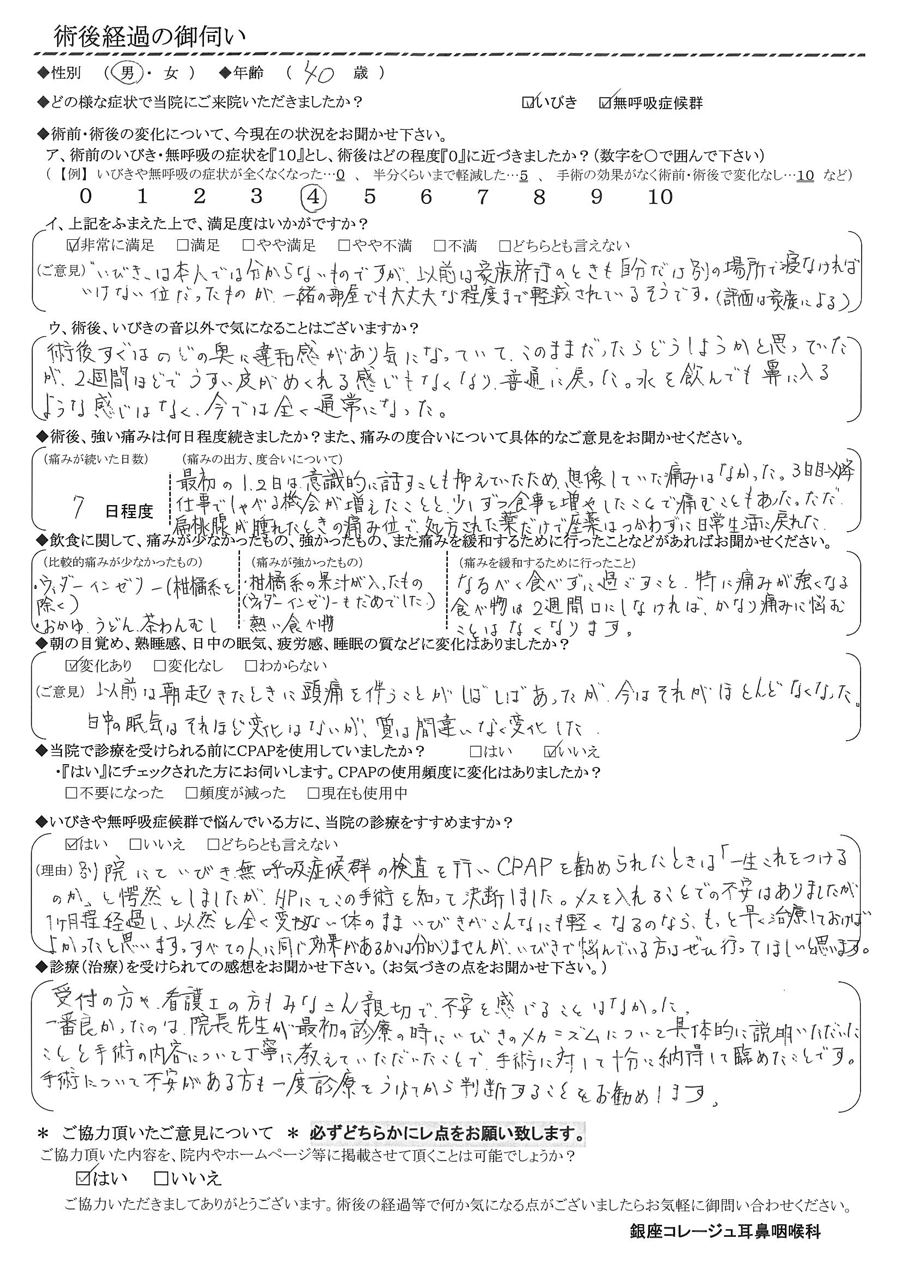 術後経過の御伺い
◆性別 (男・女) ◆年齢 (40 歳)
◆どの様な症状で当院にご来院いただきましたか? ☑いびき ☑無呼吸症候群
◆術前・術後の変化について、今現在の状況をお聞かせ下さい。
ア、術前のいびき・無呼吸の症状を『10』とし、術後はどの程度『0』に近づきましたか?(数字を〇で囲んで下さい)
(【例】いびきや無呼吸の症状が全くなくなった…0 、 半分くらいまで軽減した…5 、 手術の効果がなく術前・術後で変化なし…10 など)
0 1 2 3 4 5 6 7 8 9 10
イ、上記をふまえた上で、満足度はいかがですか?
☑非常に満足 □満足 □やや満足 □やや不満 □不満 □どちらとも言えない
(ご意見) "いびき"は本人では分からないものですが、以前は家族旅行のときも自分だけ別の場所で寝なければ
いけない位だったものが、一緒の部屋でも大丈夫な程度まで軽減されているそうです。(評価は家族による)
ウ、術後、いびきの音以外で気になることはございますか?
術後すぐはのどの奥に違和感があり気になっていて、このままだったらどうしようかと思っていた
が、2週間ほどでうすい皮がめくれる感じもなくなり、普通に戻った。水を飲んでも鼻に入る
ような感じはなく、今では全く通常になった。
◆術後、強い痛みは何日程度続きましたか?また、痛みの度合いについて具体的なご意見をお聞かせください。
(痛みが続いた日数) (痛みの出方、度合いについて)
7 日程度
最初の1,2日は、意識的に話すことも抑えていたため、想像していた痛みはなかった。3日目以降
仕事でしゃべる機会が増えたことと、少しずつ食事を増やしたことで痛むこともあった。ただ、
扁桃腺が腫れたときの痛み位で、処方された薬だけで座薬はつかわずに日常生活に戻れた。
◆飲食に関して、痛みが少なかったもの、強かったもの、また痛みを緩和するために行ったことなどがあればお聞かせください。
(比較的痛みが少なかったもの) (痛みが強かったもの) (痛みを緩和するために行ったこと)
・ウィダーインゼリー(柑橘系を
除く)
・おかゆ、うどん、茶わんむし
・柑橘系の果汁が入ったもの
(ウィダーインゼリーもだめでした)
・熱い食べ物
なるべく食べずに過ごすこと、特に痛みが強くなる
食べ物は2週間口にしなければ、かなり痛みに悩む
ことはなくなります。
◆朝の目覚め、熟睡感、日中の眠気、疲労感、睡眠の質などに変化はありましたか?
☑変化あり □変化なし □わからない
(ご意見) 以前は朝起きたときに頭痛を伴うことがしばしばあったが、今はそれがほとんどなくなった。
日中の眠気はそれほど変化はないが、質は間違いなく変化した。
◆当院で診療を受けられる前にCPAPを使用していましたか? □はい ☑いいえ
・『はい』にチェックされた方にお伺いします。CPAPの使用頻度に変化はありましたか?
□不要になった □頻度が減った □現在も使用中
◆いびきや無呼吸症候群で悩んでいる方に、当院の診療をすすめますか?
☑はい □いいえ □どちらとも言えない
(理由) 別院にていびき、無呼吸症候群の検査を行い、CPAPを勧められたときは「一生これをつける
のか」と愕然としましたが、HPにてこの手術を知って決断しました。メスを入れることでの不安はありましたが、
1ヶ月程経過し、以前と全く変わらない体のままいびきがこんなにも軽くなるのなら、もっと早く治療しておけば
よかったと思います。すべての人に同じ効果があるかは分かりませんが、いびきで悩んでいる方はぜひ行ってほしいと思います。
◆診療(治療)を受けられての感想をお聞かせ下さい。(お気づきの点をお聞かせ下さい。)
受付の方や、看護士の方もみなさん親切で、不安を感じることはなかった。
一番良かったのは、院長先生が最初の診療の時にいびきのメカニズムについて具体的に説明いただいた
ことと手術の内容について丁寧に教えていただいたことで、手術に対して十分に納得して臨めたことです。
手術について不安がある方も一度診療をうけてから判断することをお勧めします。
＊ ご協力頂いたご意見について ＊ 必ずどちらかにレ点をお願い致します。
ご協力頂いた内容を、院内やホームページ等に掲載させて頂くことは可能でしょうか?
☑はい □いいえ
ご協力いただきましてありがとうございます。術後の経過等で何か気になる点がございましたらお気軽に御問い合わせください。
銀座コレージュ耳鼻咽喉科